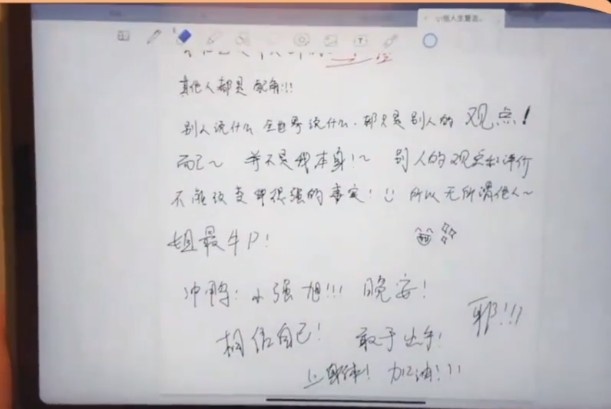 小强人生复盘
其他人都是配角!!!
别人说什么 全世界说什么,都只是别人的 观点!
而已~ 并不是我本身!~ 别人的观点和评价
不能改变却很强的事实! 所以无所谓他人~
姐最牛P!
冲鸭! 小强旭!!! 晚安!
相信自己! 敢于出手! 耶!!!
身体! 加油!!!